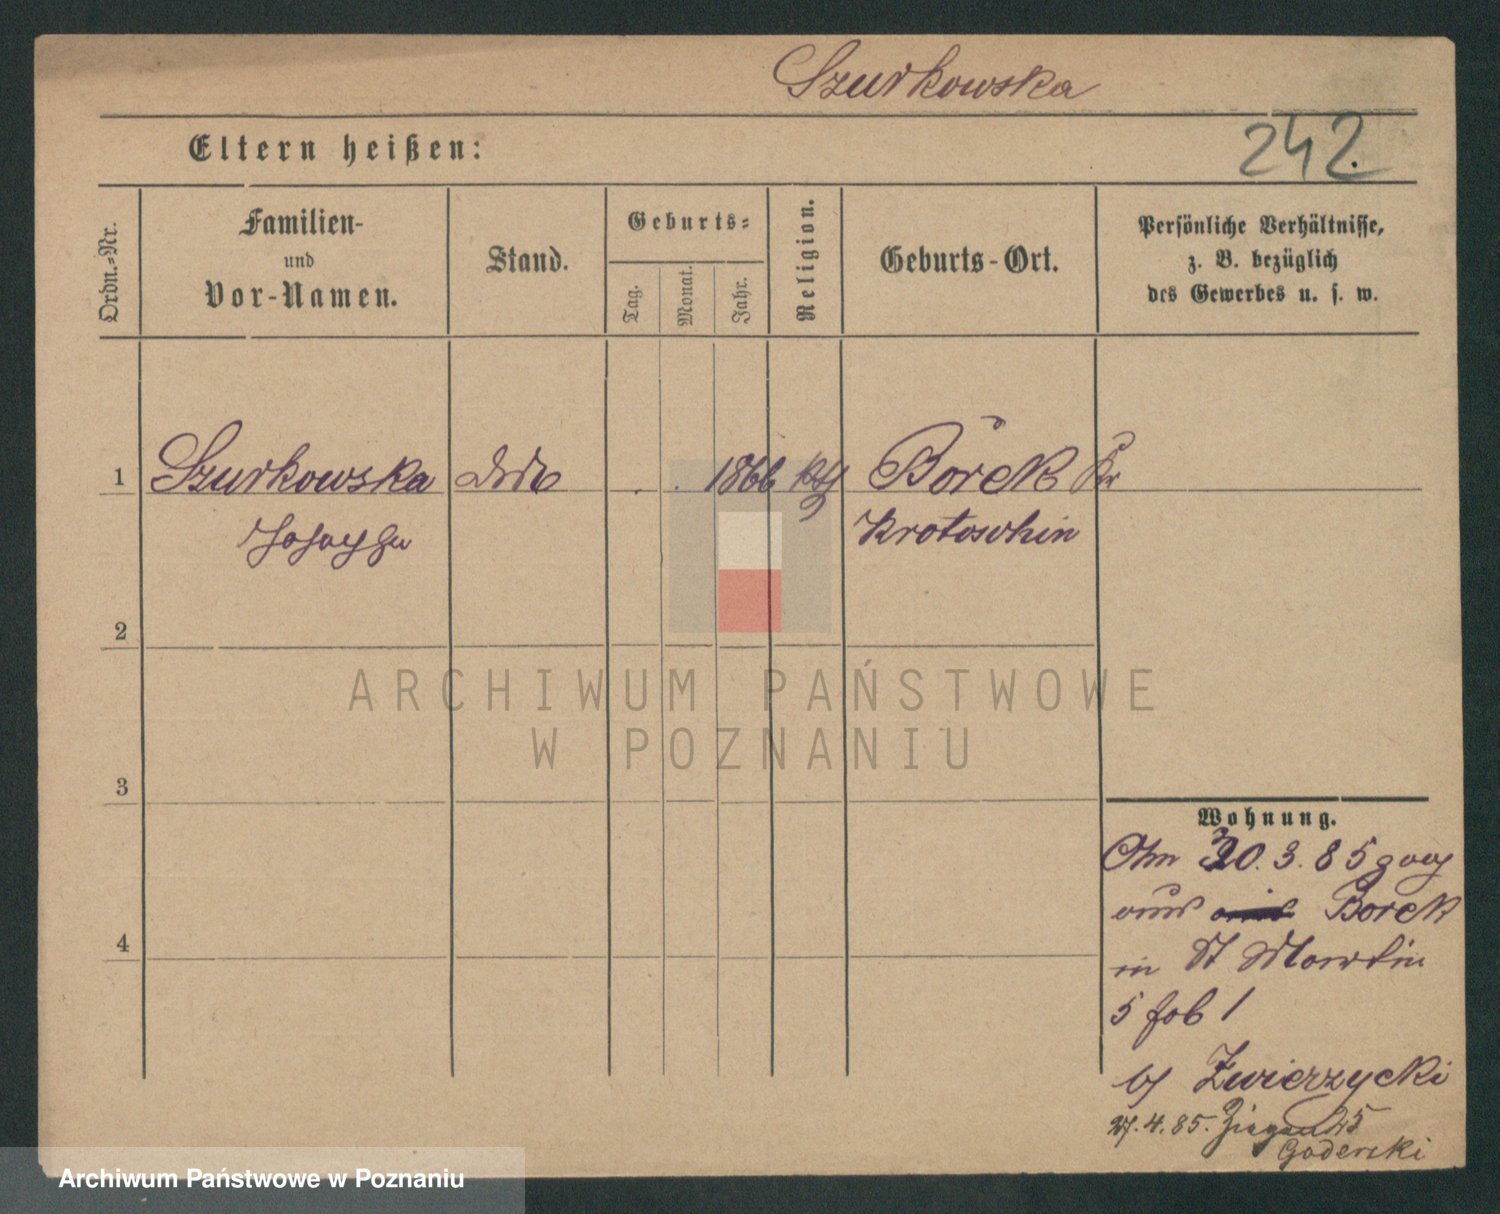 Szurkowska
242.
Eltern heißen:
Ordn.-Nr.
Familien-
und
Vor-Namen.
Stand.
Geburts-
Tag.
Monat.
Jahr.
Religion.
Geburts-Ort.
Persönliche Verhältnisse,
z. B. bezüglich
des Gewerbes u. s. w.
1 Szurkowska 1866 kth Borek Kr
Krotoschin
2
ARCHIWUM PAŃSTWOWE
W POZNANIU
3
Wohnung.
20. 3. 85 zug
aus Borek
in St Martin
5 1
by Zwierzycki
4
27. 4. 85. Ziegen 25
Goderski
Archiwum Państwowe w Poznaniu